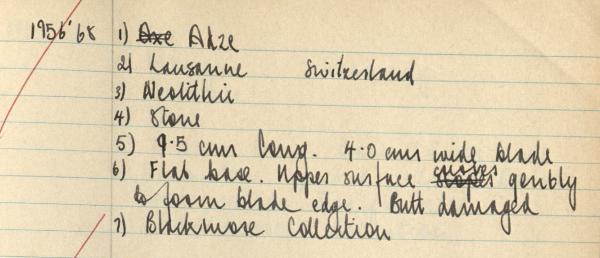 1956'68 1) Axe Adze
2) Lausanne Switzerland
3) Neolithic
4) Stone
5) 9.5 cms long. 4.0 cms wide blade
6) Flat base. Upper surface slopes curves gently
to form blade edge. Butt damaged
7) Blackmore Collection